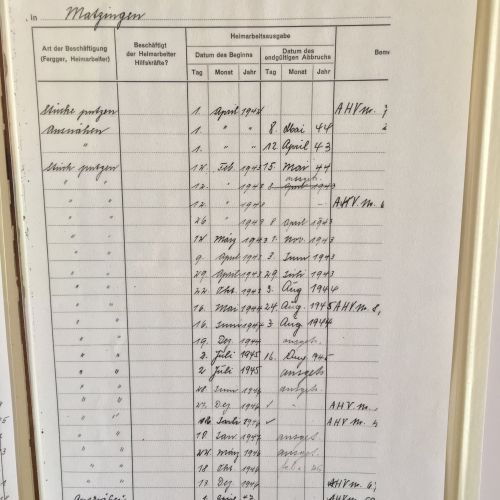 in Matzingen
Heimarbeitsausgabe
Art der Beschäftigung
(Fergger, Heimarbeiter)
Beschäftigt
der Heimarbeiter
Hilfskräfte?
Datum des Beginns
Datum des
endgültigen Abbruchs
Tag Monat Jahr Tag Monat Jahr
Stücke putzen 1. April 1942 AHV Nr.
Ausnähen 1. " " 8. Mai 44
" 1. " " 12. April 43
Stück putzen 12. Feb. 1943 15. Mai 44
" " 12. " 1943 April 1943
" " 12. " 1943 AHV Nr. 6
" " 26 " 1943 8 April 1943
" " 12. März 1943 1. Nov. 1943
" " 9. April 1943 3. Juni 1943
" " 29. April 1943 29. Juli 1943
" " 22. Okt. 1943 3. Aug 1944
" " 16. Mai 1944 24. Aug. 1945 AHV Nr. 8,
" " 16. Juni 1944 3 Aug 1944
" " 19. Dez 1944 ausgeh.
" " 2. Juli 1945 16. Aug 1945
" " 2 Juli 1945 ausgeh
" " 28. Juni 1946 ausgeh.
" " 27. Dez 1946 AHV Nr.
" " 1946 AHV Nr. 5
" " 18 Jan 1947 ausgeh.
" " 22. März 1946 ausgeh.
" " 18 Okt. 1946
" " 13 Dez 1946 AHV Nr. 6,